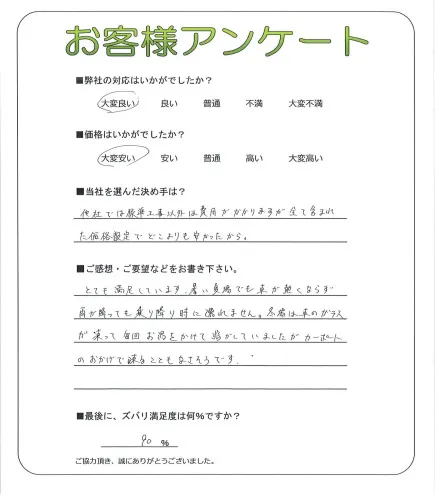 お客様アンケート
■弊社の対応はいかがでしたか？
大変良い 良い 普通 不満 大変不満
■価格はいかがでしたか？
大変安い 安い 普通 高い 大変高い
■当社を選んだ決め手は？
他社では標準工事以外は費用がかかりますが全て含まれ
た価格設定でどこよりも安かったから。
■ご感想・ご要望などをお書き下さい。
とても満足しています。暑い夏場でも車が熱くならず
雨が降っても乗り降り時に濡れません。冬場は車のガラス
が凍って毎回お湯をかけて溶かしていましたがカーポート
のおかげで凍ることもなさそうです。
■最後に、ズバリ満足度は何％ですか？
90 %
ご協力頂き、誠にありがとうございました。